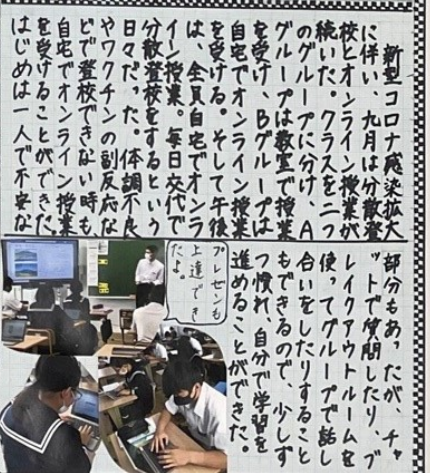 新型コロナ感染拡大
に伴い、九月は分散登
校とオンライン授業が
続いた。クラスを二つ
のグループに分け、A
グループは教室で授業
を受け、Bグループは
自宅でオンライン授業
を受ける。そして午後
は、全員自宅でオンラ
イン授業。毎日交代で
分散登校をするという
日々だった。体調不良
やワクチンの副反応な
どで登校できない時も、
自宅でオンライン授業
を受けることができた。
はじめは一人で不安な
部分もあったが、チャ
ットで質問したり、ブ
レイクアウトルームを
使ってグループで話し
合いをしたりすること
もできるので、少しず
つ慣れ、自分で学習を
進めることができた。
プレゼンも
上達でき
たよ。